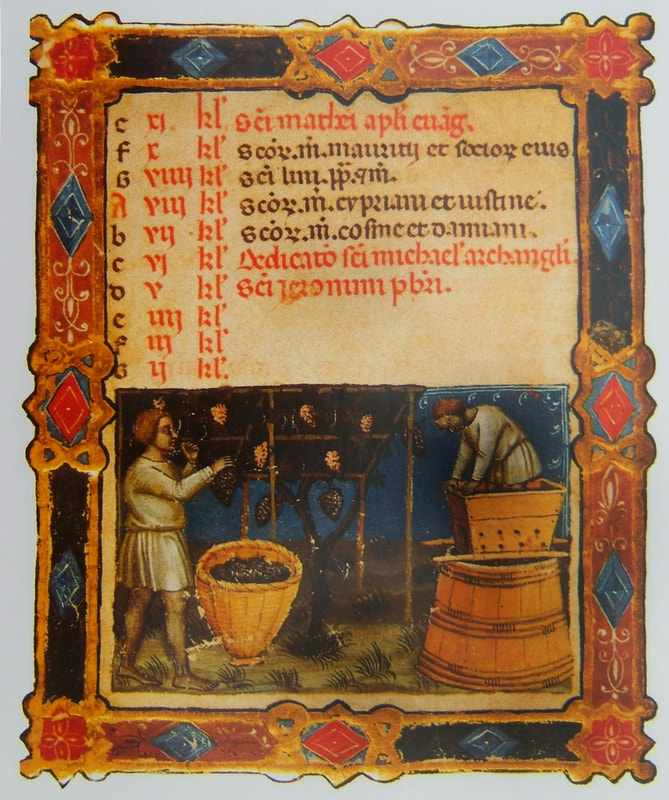 c xi kl' Sci mathei apli euāg.
f x kl' Scoꝝ. m̄. mauritij et socioꝝ eius.
G viiij kl' Sci lini. pp̄.
A viij kl' Scoꝝ. m̄. cypriani et iustine.
b vij kl' Scoꝝ. m̄. cosme et damiani.
c vj kl' Dedicatō sci michael' archangli.
D v kl' Sci ieronimi pb̄ri.
e iiij kl'
f iij kl'
G ij kl'.